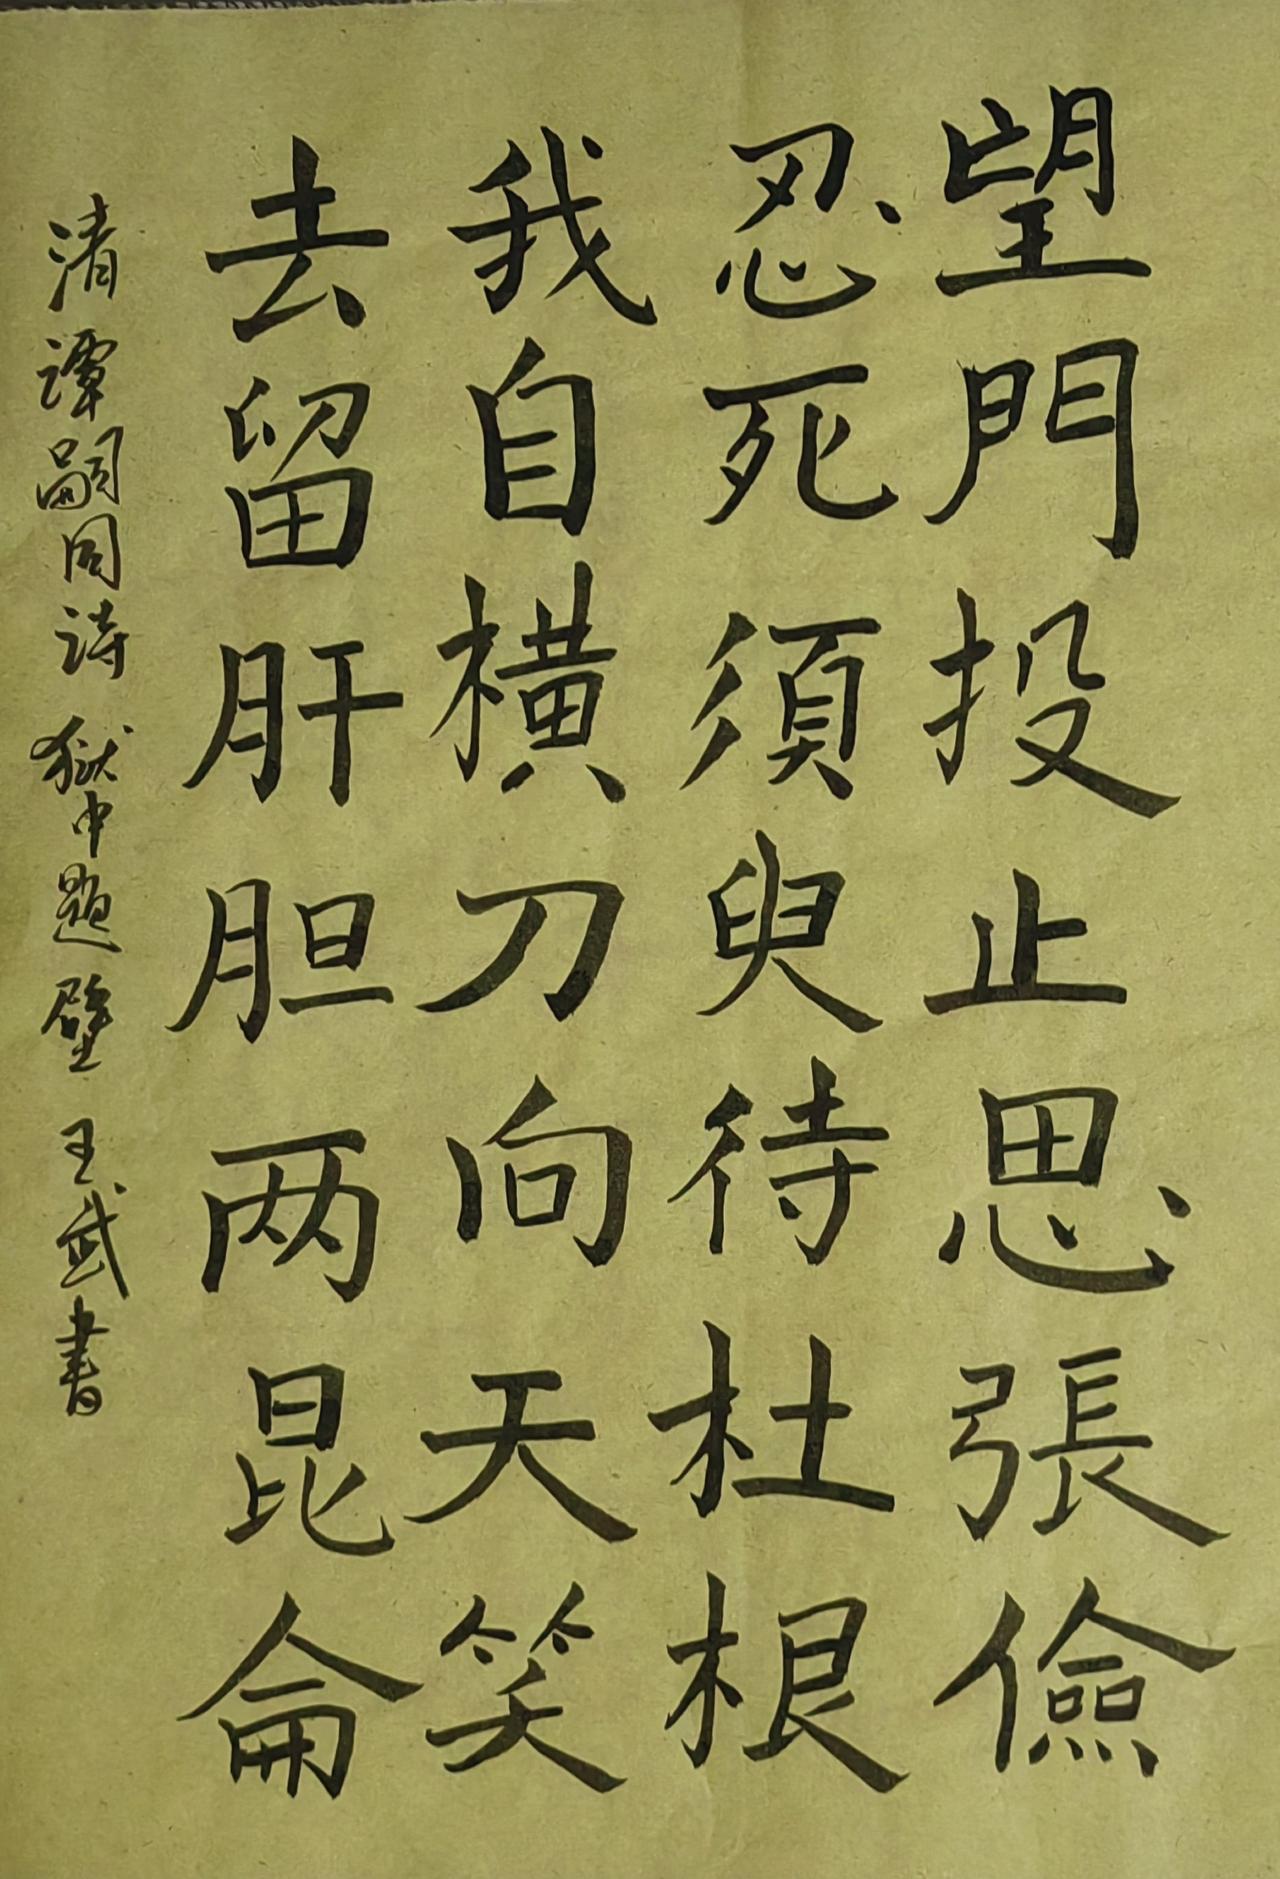 望門投止思張儉
忍死須臾待杜根
我自横刀向天笑
去留肝胆两昆侖
清譚嗣同詩獄中題壁王武書